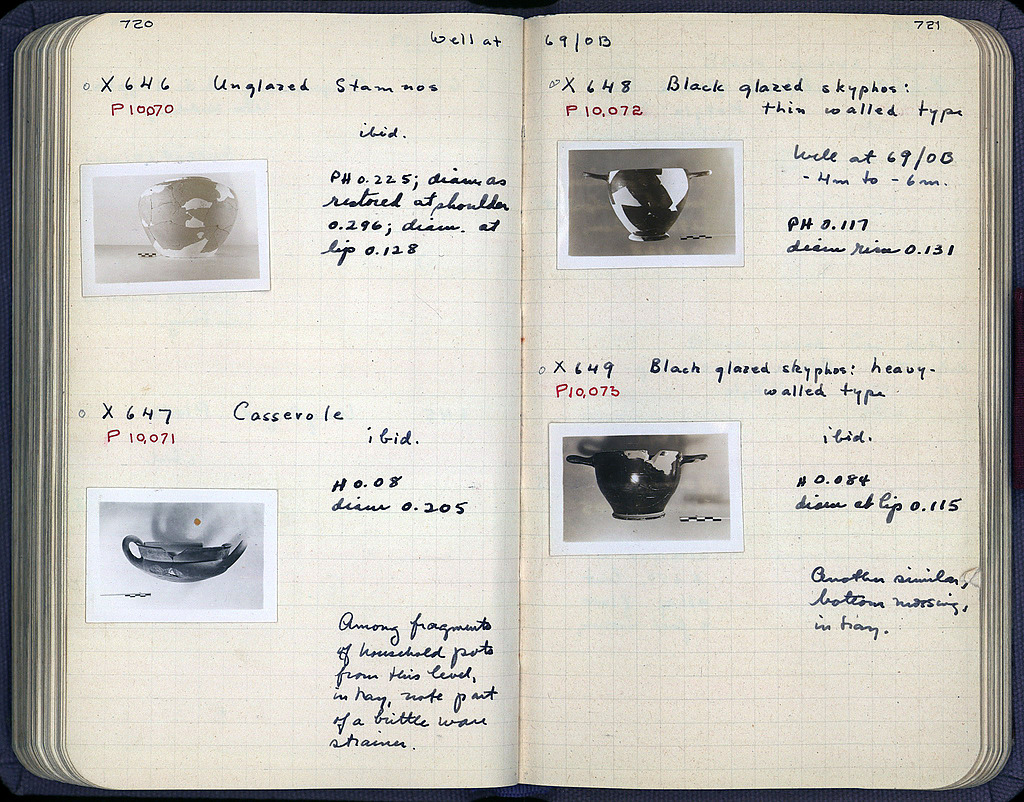 720
Well at
X 646 Unglazed Stamnos
P 10070
ibid.
PH 0.225; diam as
restored at shoulder
0.296; diam. at
lip 0.128
X 647 Casserole
P 10,071
ibid.
H 0.08
diam 0.205
Among fragments
of household pots
from this level,
in tray, note part
of a brittle ware
strainer.
721
69/ΟΒ
X 648 Black glazed skyphos:
P 10,072 thin walled type
Well at 69/ΟΒ
- 4m to - 6m.
PH 0.117
diam rim 0.131
X 649 Black glazed skyphos: heavy-
P10,073 walled type
ibid.
H 0.084
diam at lip 0.115
Another similar,
bottom missing,
in tray.